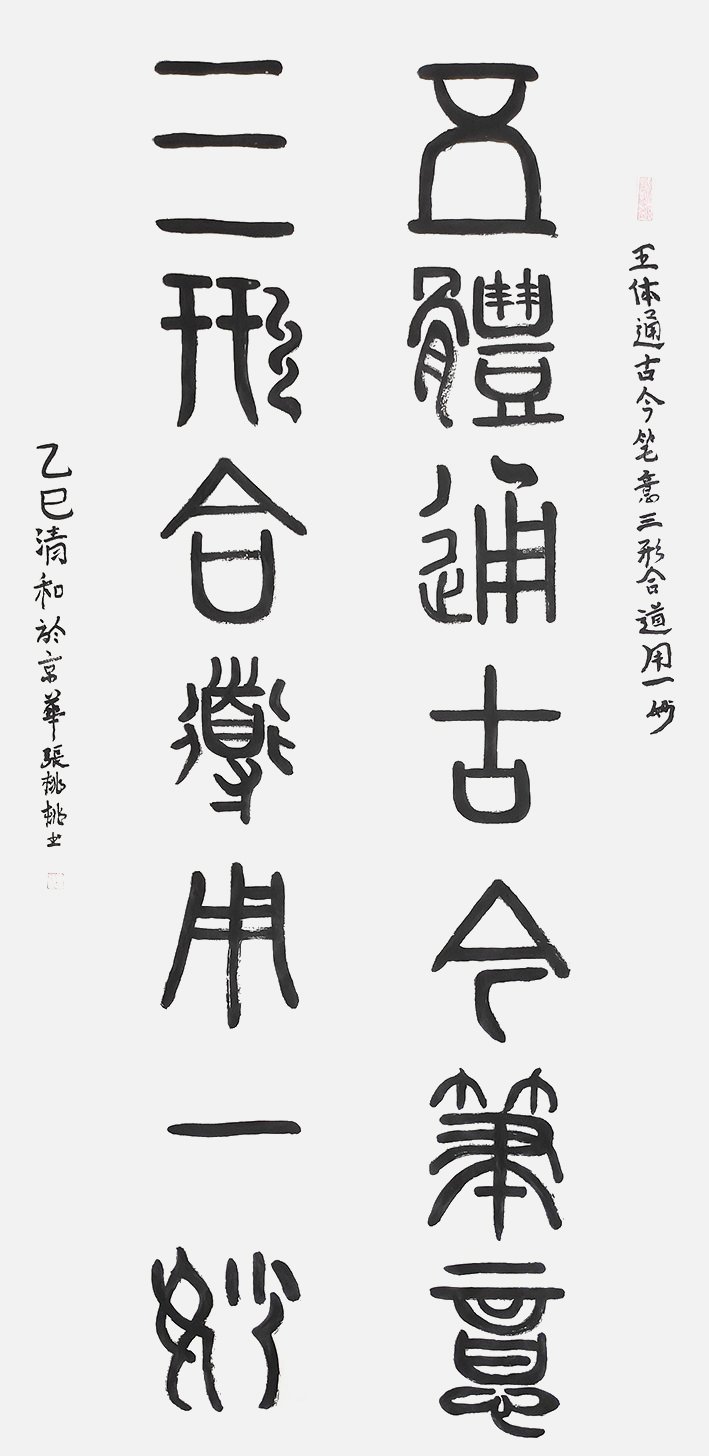 五体通古今笔意三形合道用一妙
五體通古今筆意
三形合導用一妙
乙巳清和於京華張桃桃书